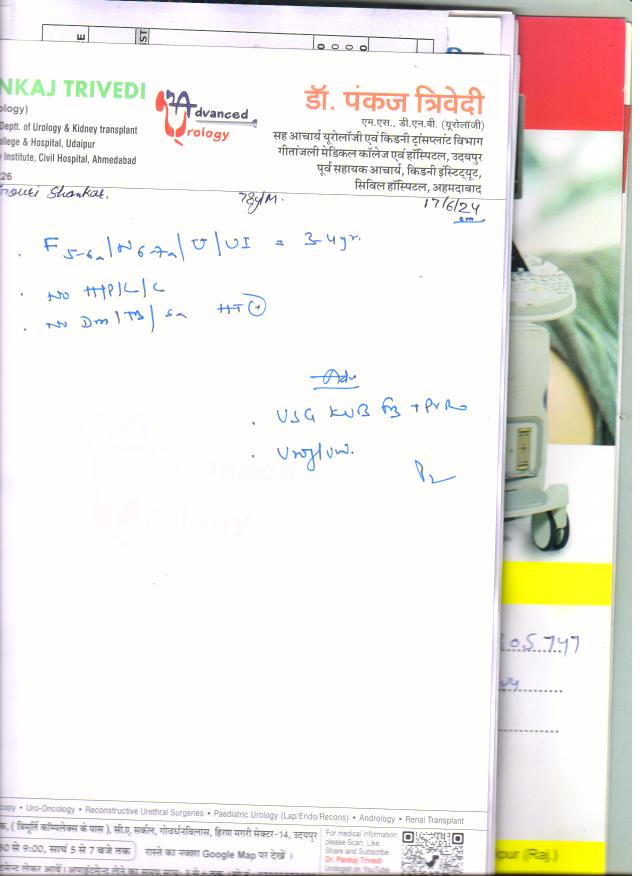 NKAJ TRIVEDI
ology)
Deptt. of Urology & Kidney transplant
llege & Hospital, Udaipur
Institute, Civil Hospital, Ahmedabad
26
Advanced
Urology
डॉ. पंकज त्रिवेदी
एम.एस., डी.एन.बी. (यूरोलॉजी)
सह आचार्य यूरोलॉजी एवं किडनी ट्रांसप्लांट विभाग
गीतांजली मेडिकल कॉलेज एवं हॉस्पिटल, उदयपुर
पूर्व सहायक आचार्य, किडनी इंस्टिट्यूट,
सिविल हॉस्पिटल, अहमदाबाद
Shankar. 78y/M. 17/6/24
F 5-6 / N 6-7 / U / UI = 3-4 yr.
NO H/P/L/C
NO Dm / TB / HT +
Adv
USG KUB + PVR
505747
opy • Uro-Oncology • Reconstructive Urethral Surgeries • Paediatric Urology (Lap/Endo/Recons) • Andrology • Renal Transplant
क, ( त्रिमूर्ति कॉम्पलेक्स के पास ), सी.ए. सर्कल, गोवर्धनविलास, हिरण मगरी सेक्टर-14, उदयपुर
से 9:00, सायं 5 से 7 बजे तक रास्ते का नक्शा Google Map पर देखें ।
For medical information
please Scan, Like,
Share and Subscribe
Dr. Pankaj Trivedi
Urologist on YouTube
pur (Raj.)